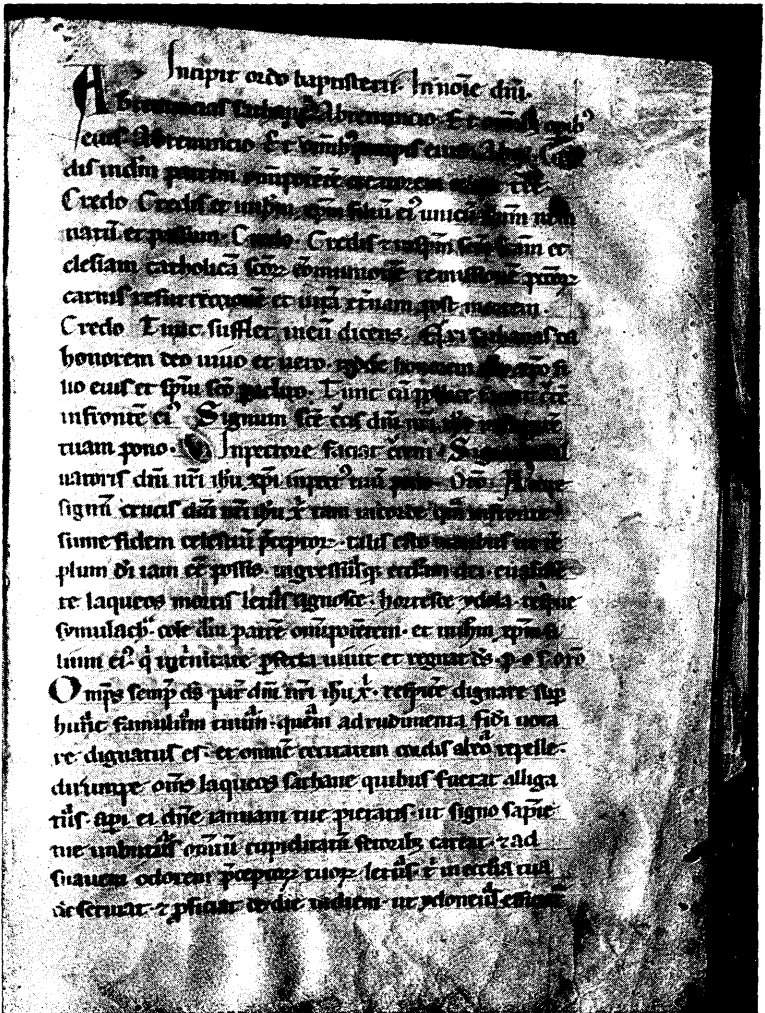 Incipit ordo baptisterii. In noīe dn̄i.
Abrenuncias sathane Abrenuncio. Et omīb; opib;
eius Abrenuncio Et omīb; pompis eius. Abre.
dis in dm̄ patrem om̄potētē creatorem
Credo Credis et in ihm̄ xpm̄ filiū ei⁹ unicū dn̄m n̄rm
natū et passum. Credo. Credis ⁊ in spm̄ scm̄ scam̄ ec
clesiam catholicā scoꝝ cōmunionē remissionē pccoꝝ
carnis resurrectionē et uitā et̄nam post mortem.
Credo Tunc sufflet in eū dicens. Exi sathanas da
honorem deo uiuo et uero. redde honorem ihu xpo fi
lio eius et spui sco paclito. Tunc cū pollice faciat crucē
in frontē ei⁹. Signum scē cruc̄ dn̄i n̄ri ihu in frontē
tuam pono. In pectore faciat crucem. Signum sal
uatoris dn̄i n̄ri ihu xpi in pect⁹ tuū pono. Oro. Accipe
signū crucis dn̄i n̄ri ihu x̄ tam in corde qm̄ in fronte
sume fidem celestiū p̄ceptoꝝ. talis esto moribus ut tē
plum di iam eē possis. ingressusq; eccl̄am dei. euasisse
te laqueos mortis letus agnosce. horresce ydola. respue
symulac͛. cole dm̄ patrē om̄ipotētem. et ihm̄ xpm̄ fi
lium ei⁹. q̇ in t̓nitate p̄fecta uiuit et regnat ds̄. p. o. s. oro
Om̄ps semp ds̄ pat̓ dn̄i n̄ri ihu x̓. respice dignare sup
hunc famulum tuum. quem ad rudimenta fidi uoca
re dignatus es. et omnē cecitatem cordis ab eo repelle.
dirumpe om̄s laqueos sathane quibus fuerat alliga
tus. api ei dn̄e ianuam tue pietatis. ut signo sapīe
tue imbutus omniū cupiditatū fetorib; careat. ⁊ ad
suauem odorem p̄ceptoꝝ tuoꝝ letus t̓ in ecclīa tua
deseruiat. ⁊ p̄ficiat de die in diem. ut ydoneus efficiat̓